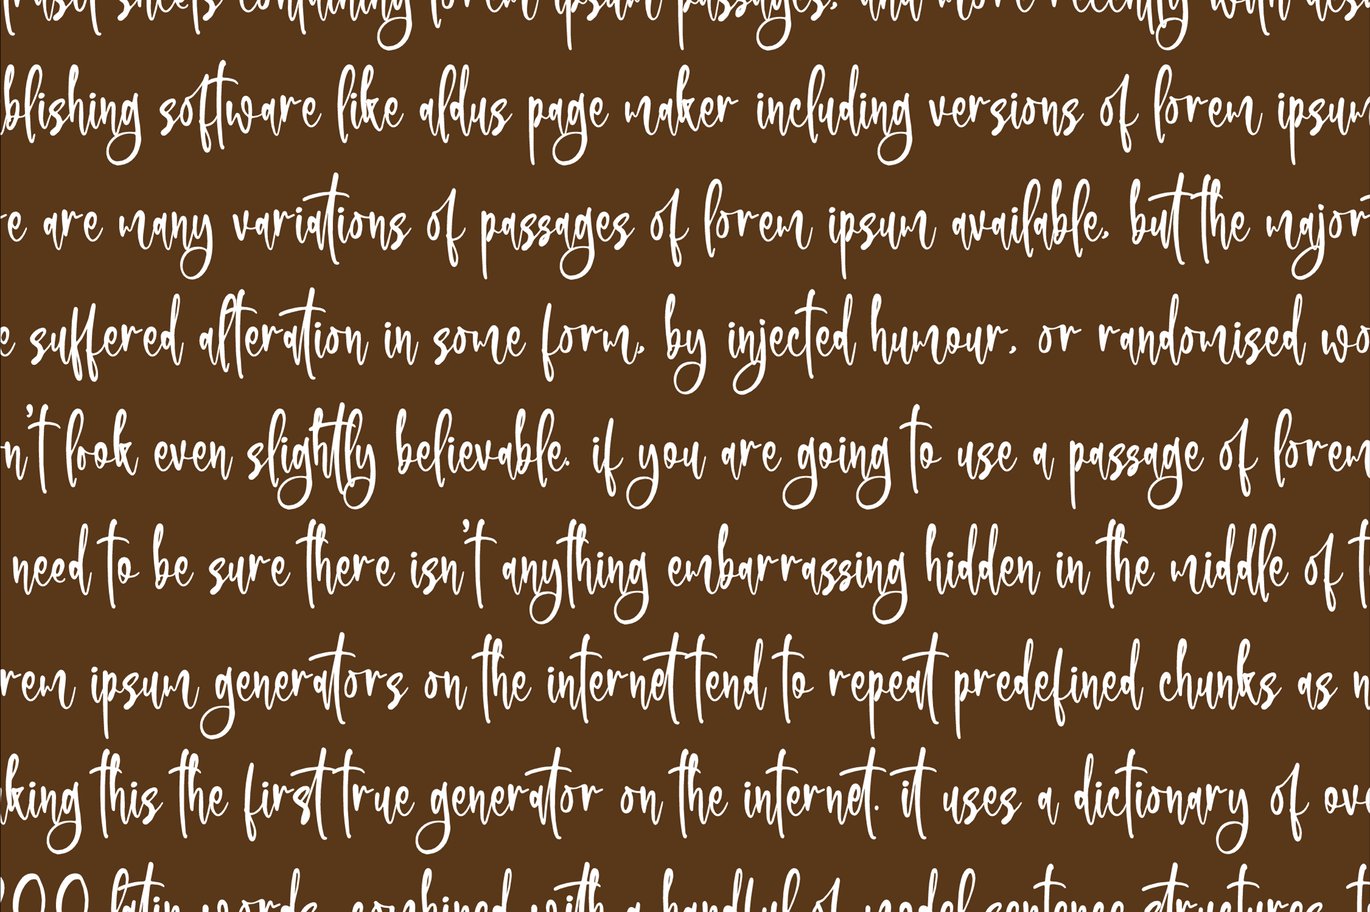 traset sheets containing lorem ipsum passages, and more recently with des
blishing software like aldus page maker including versions of lorem ipsum
e are many variations of passages of lorem ipsum available, but the major
e suffered alteration in some form, by injected humour, or randomised wo
n't look even slightly believable. if you are going to use a passage of lorem
need to be sure there isn't anything embarrassing hidden in the middle of t
rem ipsum generators on the internet tend to repeat predefined chunks as n
king this the first true generator on the internet. it uses a dictionary of ove
200 latin words, combined with a handful of model sentence structures, t